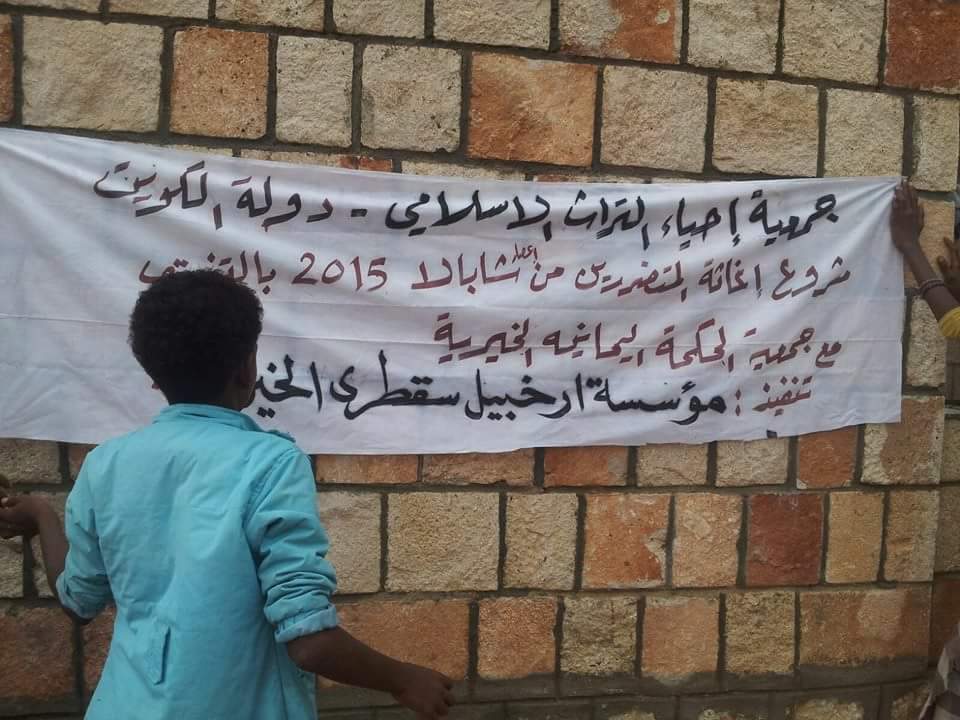 جمعية إحياء التراث الاسلامي - دولة الكويت
مشروع إغاثة المتضررين من إعصار شابالا 2015 بالتنسيق
مع جمعية الحكمة اليمانيه الخيرية
تنفيذ : مؤسسة ارخبيل سقطرى